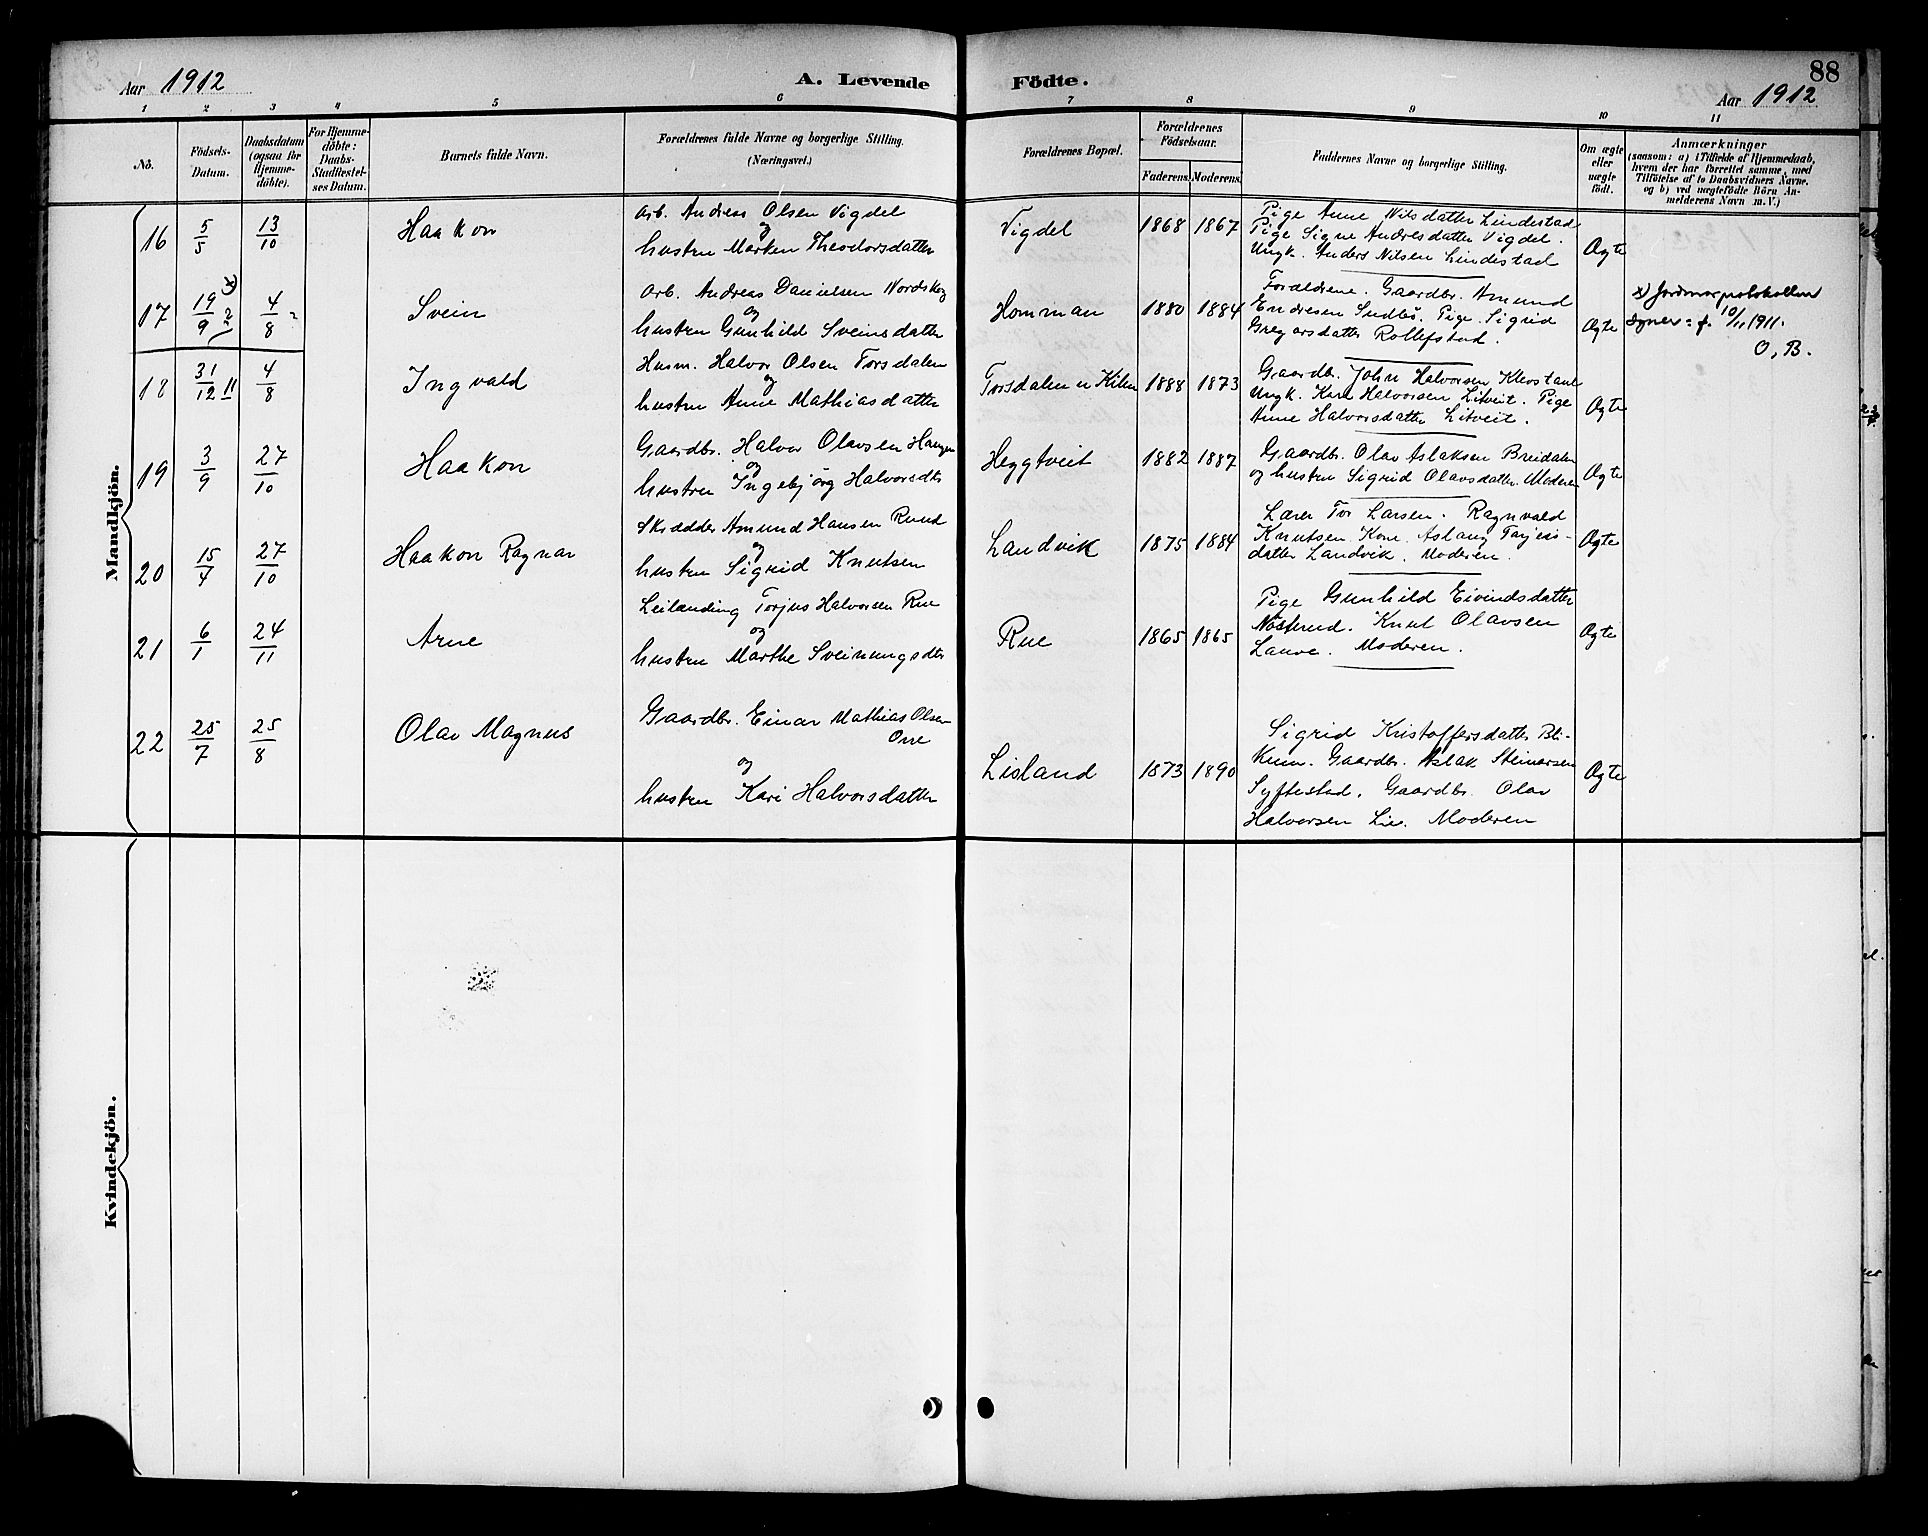 88
Aar 1912
A. Levende Födte.
Aar 1912
1 2 3 4 5 6 7 8 9 10 11
No.
Födsels-Datum.
Daabsdatum (ogsaa for Hjemme-döbte).
For Hjemme-döbte: Daabs-Stadfæstel-ses Datum.
Barnets fulde Navn.
Forældrenes fulde Navne og borgerlige Stilling.
(Næringsvei.)
Forældrenes Bopæl.
Forældrenes Födselsaar.
Faderens. Moderens.
Faddernes Navne og borgerlige Stilling.
Om ægte eller uægte födt.
Anmærkninger
(saasom: a) i Tilfælde af Hjemmedaab,
hvem der har forrettet samme, med
Tilföielse af to Daabsvidners Navne,
og b) ved uægtefödte Börn An-
melderens Navn m. V.)
Mandkjön.
16 5/5 13/10 Haakon
Arb. Andreas Olsen Vigdel
og
hustru Marken Theodorsdatter
Vigdel 1868 1867
Pige Anne Nilsdatter Lindestad
Pige Signe Andresdatter Vigdel.
Ungk. Anders Nilsen Lindestad
Ægte
17 19/9 ? x) 4/8 Svein
Arb. Andreas Danielsen Nordskog
og
hustru Gunhild Sveinsdatter
Homman 1880 1884
Forældrene. Gaardbr. Amund
Endresen Sudbö. Pige Sigrid
Gregarsdatter Rollefstad.
Ægte
x) Jordmorprotokollen
10/11 1911.
O, B.
18 31/12 11 4/8 Ingvald
Husm. Halvor Olsen Torsdalen
og
hustru Anne Mathiasdatter
Torsdalen u Kilen 1888 1873
Gaardb. John Halvorsen Klevstaul
Ungk. Karl Halvorsen Litveit. Pige
Anne Halvorsdatter Litveit.
Ægte
19 3/9 27/10 Haakon
Gaardbr. Halvor Olavsen Haugen
og
hustru Ingebjörg Halvorsdtr
Heggtveit 1882 1887
Gaardbr. Olav Aslaksen Breidalen
og hustru Sigrid Olavsdatter. Moderen
Ægte
20 15/4 27/10 Haakon Ragnar
Skrædder Amund Hansen Ruud
og
hustru Sigrid Knutsen
Landvik 1875 1884
Lærer Tor Larsen. Ragnvald
Knutsen. Kone Aslaug Tarjeis-
datter Landvik. Moderen.
Ægte
21 6/1 24/11 Arne
Leilænding Torjus Halvorsen Rue
og
hustru Marthe Sveinungsdtr
Rue 1865 1865
Pige Gunhild Eivindsdatter
Nösterud. Knut Olavsen
Lauve. Moderen.
Ægte
22 25/7 25/8 Olav Magnus
Gaardbr. Einar Mathias Olsen
Orre
og
hustru Kari Halvorsdatter
Lisland 1873 1890
Sigrid Kristoffersdatter Bli-
Gaardbr. Aslak Steinarsen
Syftestad. Gaardbr. Olav
Halvorsen Lie. Moderen
Ægte
Kvindekjön.